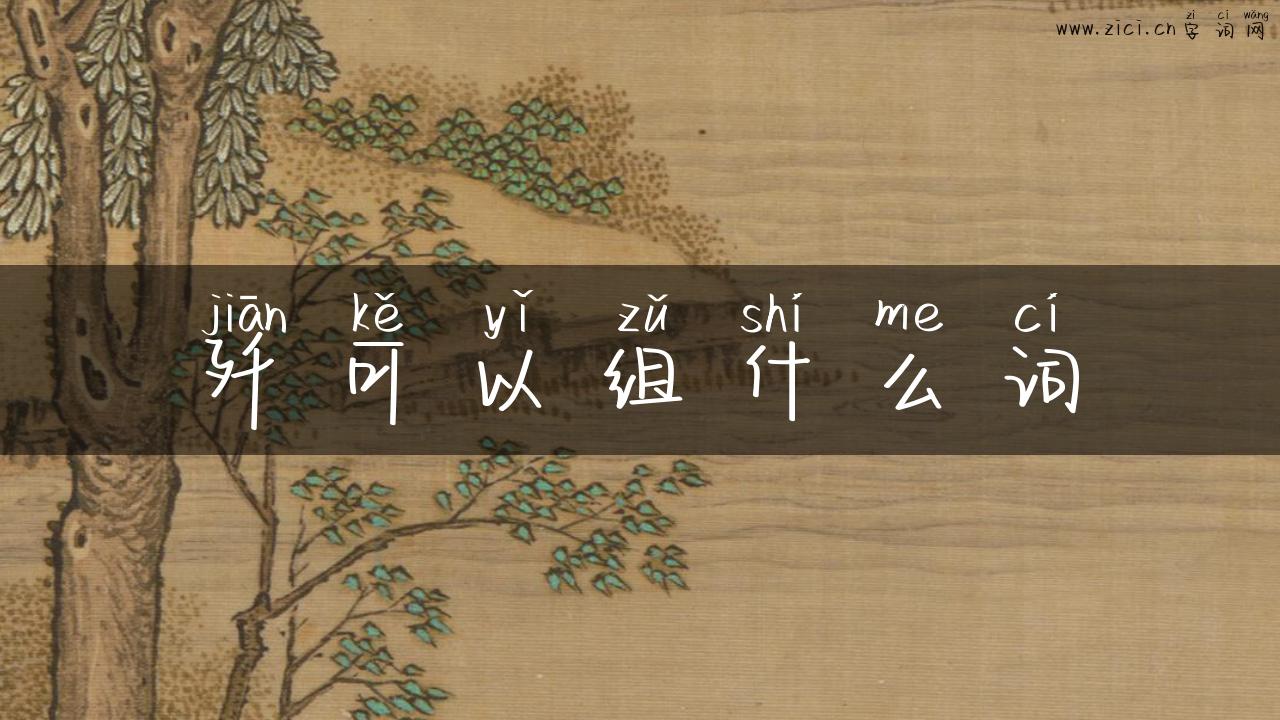 zì cí wǎng
www.zici.cn 字词网
jiān kě yǐ zǔ shí me cí
歼可以组什么词